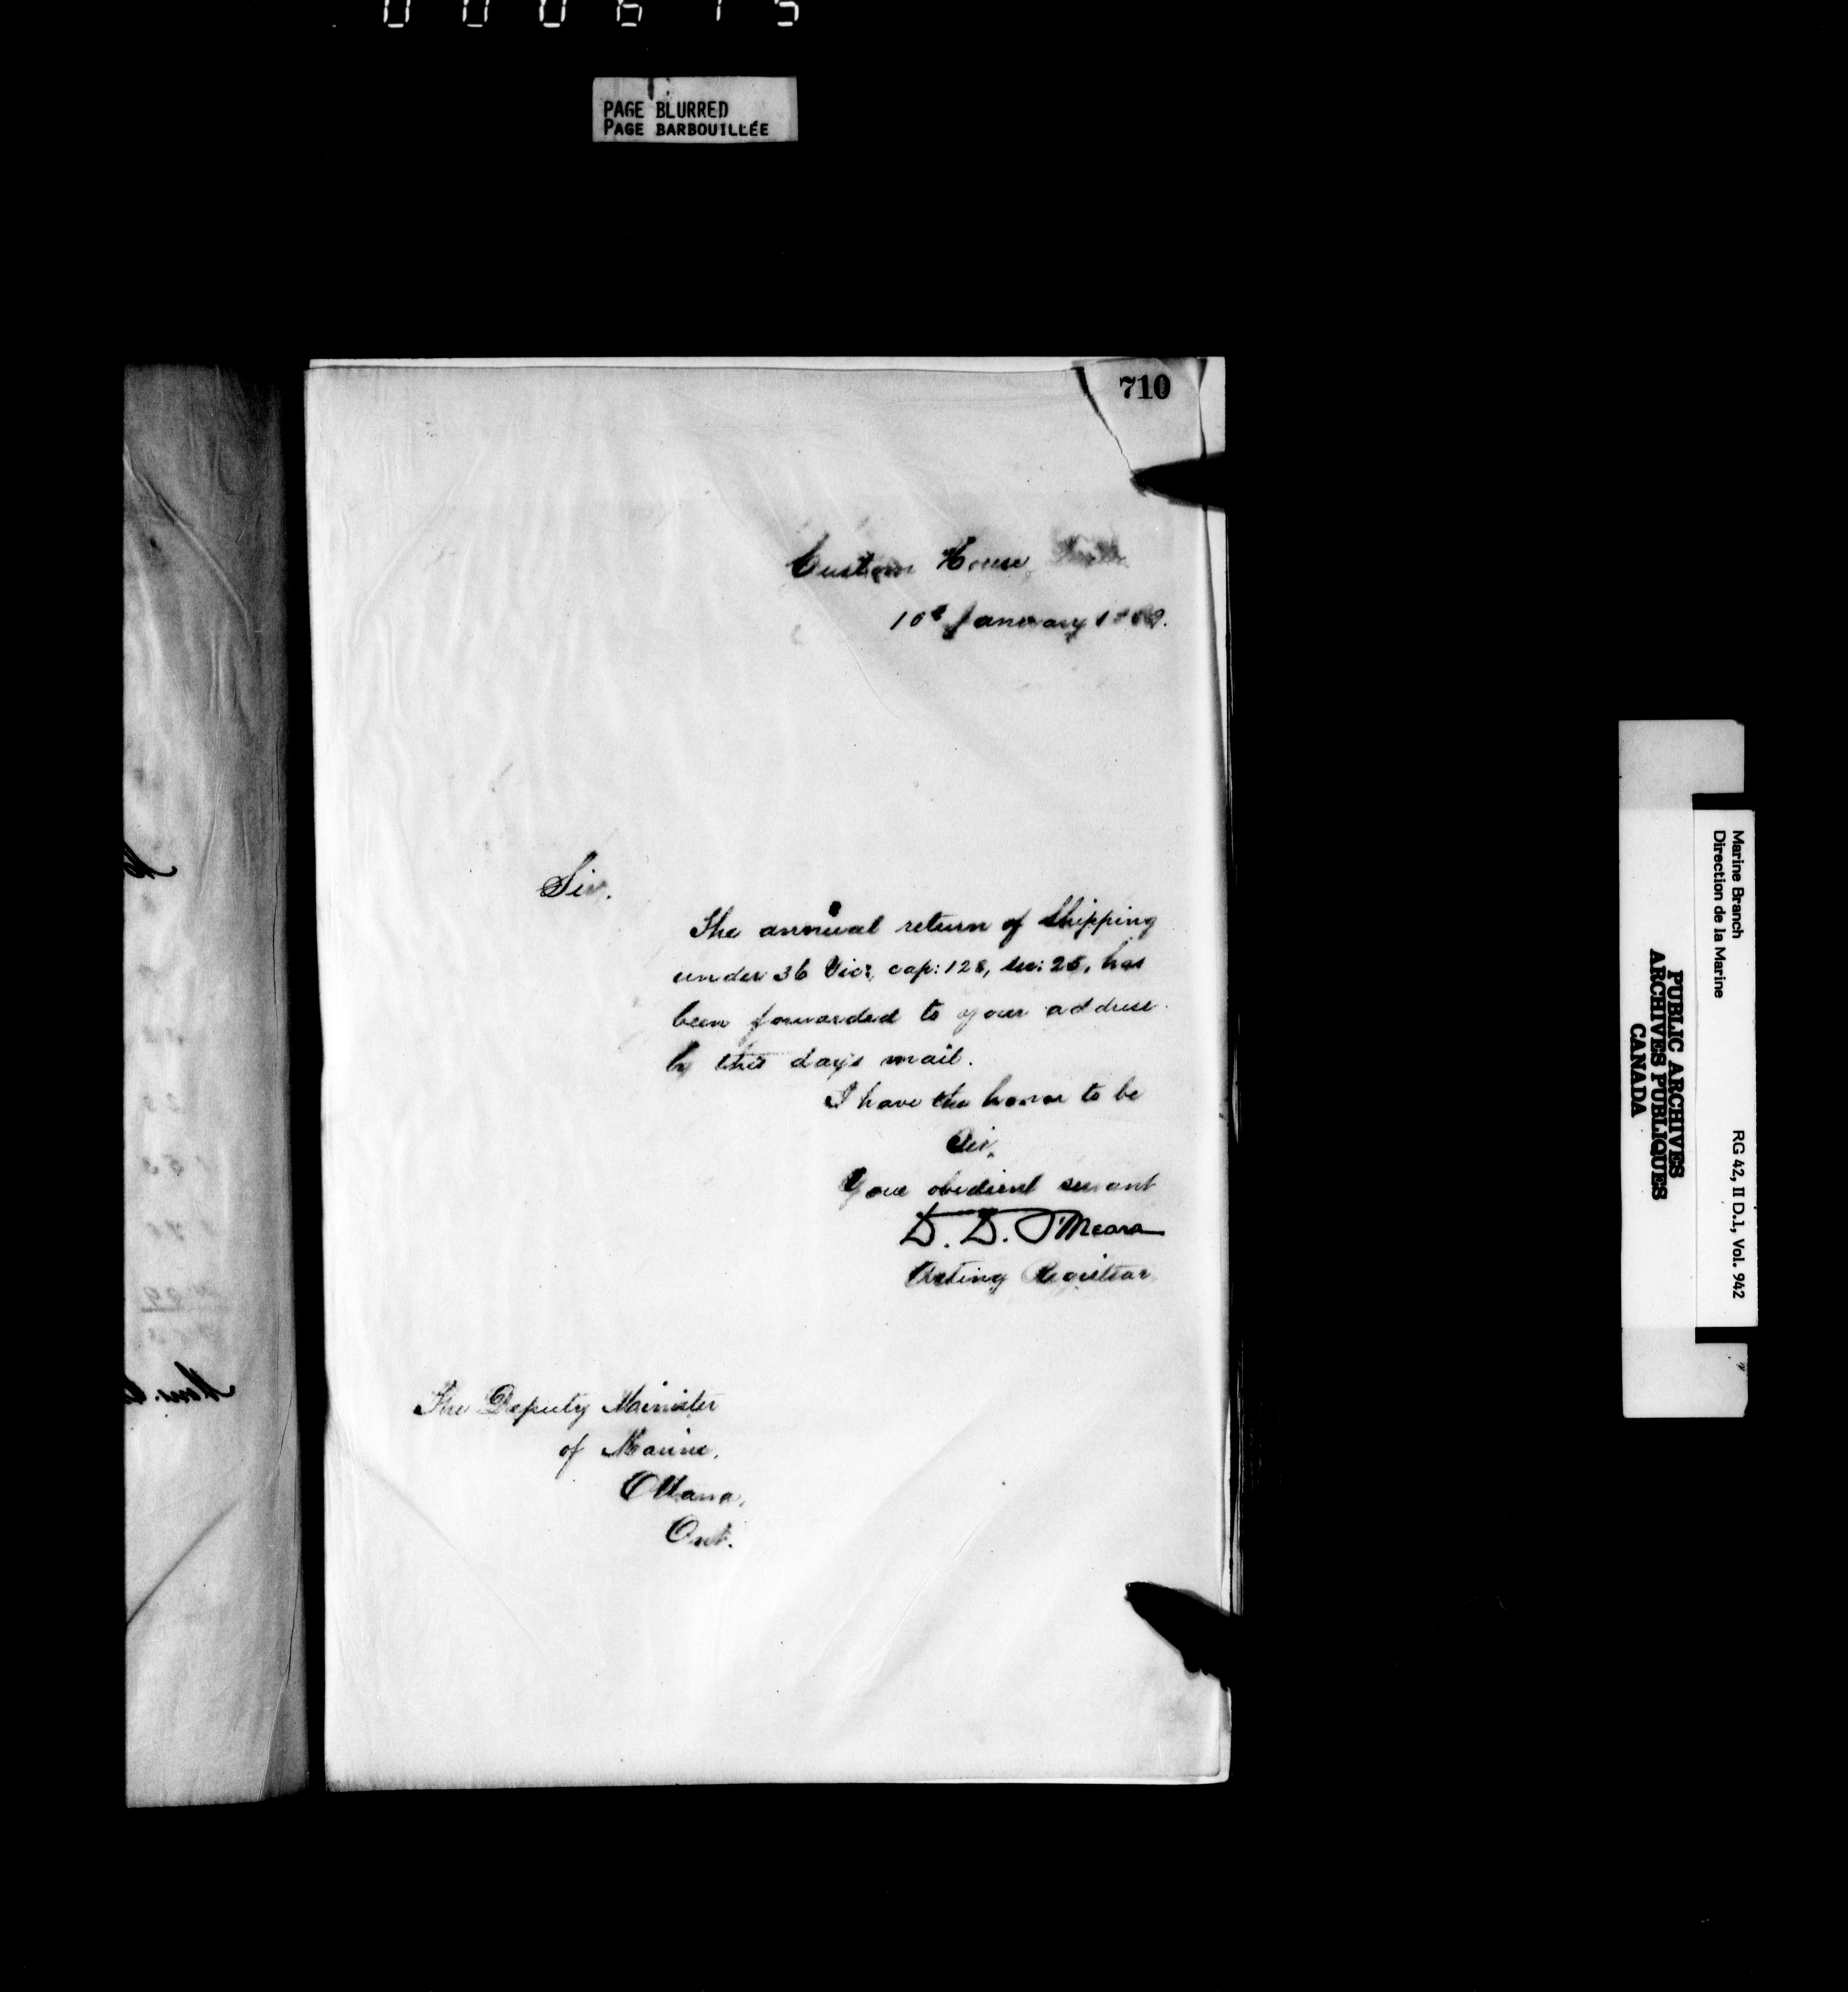 PAGE BLURRED
PAGE BARBOUILLÉE
710
Custom House
10th January
Sir.
The annual return of Shipping
under 36 Vic: cap: 128, sec: 25, has
been forwarded to your address
by this day's mail.
I have the honor to be
Sir,
Your obedient servant
D. D. O'Meara
Acting Registrar
The Deputy Minister
of Marine,
Ottawa,
Ont.
Marine Branch
Direction de la Marine
RG 42, II D.1, Vol. 942
PUBLIC ARCHIVES
ARCHIVES PUBLIQUES
CANADA